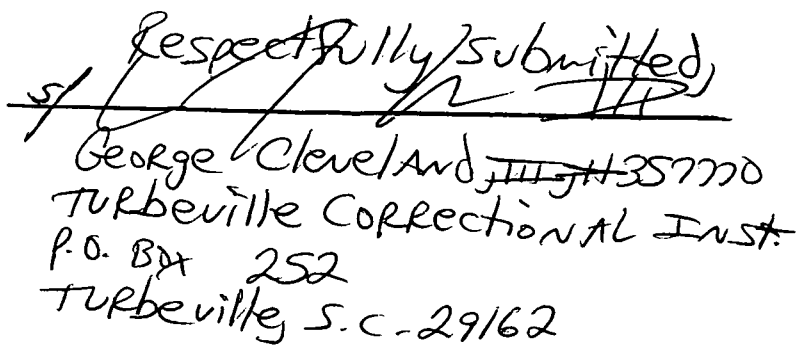 Respectfully Submitted,
s/
George Cleveland, III, # 357770
Turbeville Correctional Inst.
P.O. Box 252
Turbeville, S.C. 29162